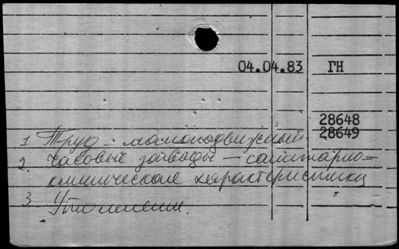 04.04.83 ГН
28648
28649
1 Труд - малоподвижный
2. Часовые заводы - санитарно-
химические характеристики
3 Утомление.